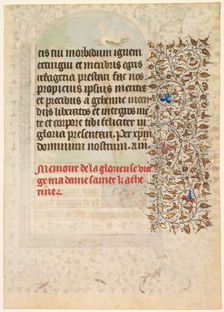 cris tui morbidum ignem
extingui et membris egris
refrigeria prestari fac nos
propicius ipsius meritis
et precibus a gehenne incen
diis liberatos et integros men
te et corpore tibi feliciter in
gloria presentari. Per xp̄m
dominum nostrum. am̄.
Memoire de la glorieuse vier
ge ma dame sainte kathe
rine.